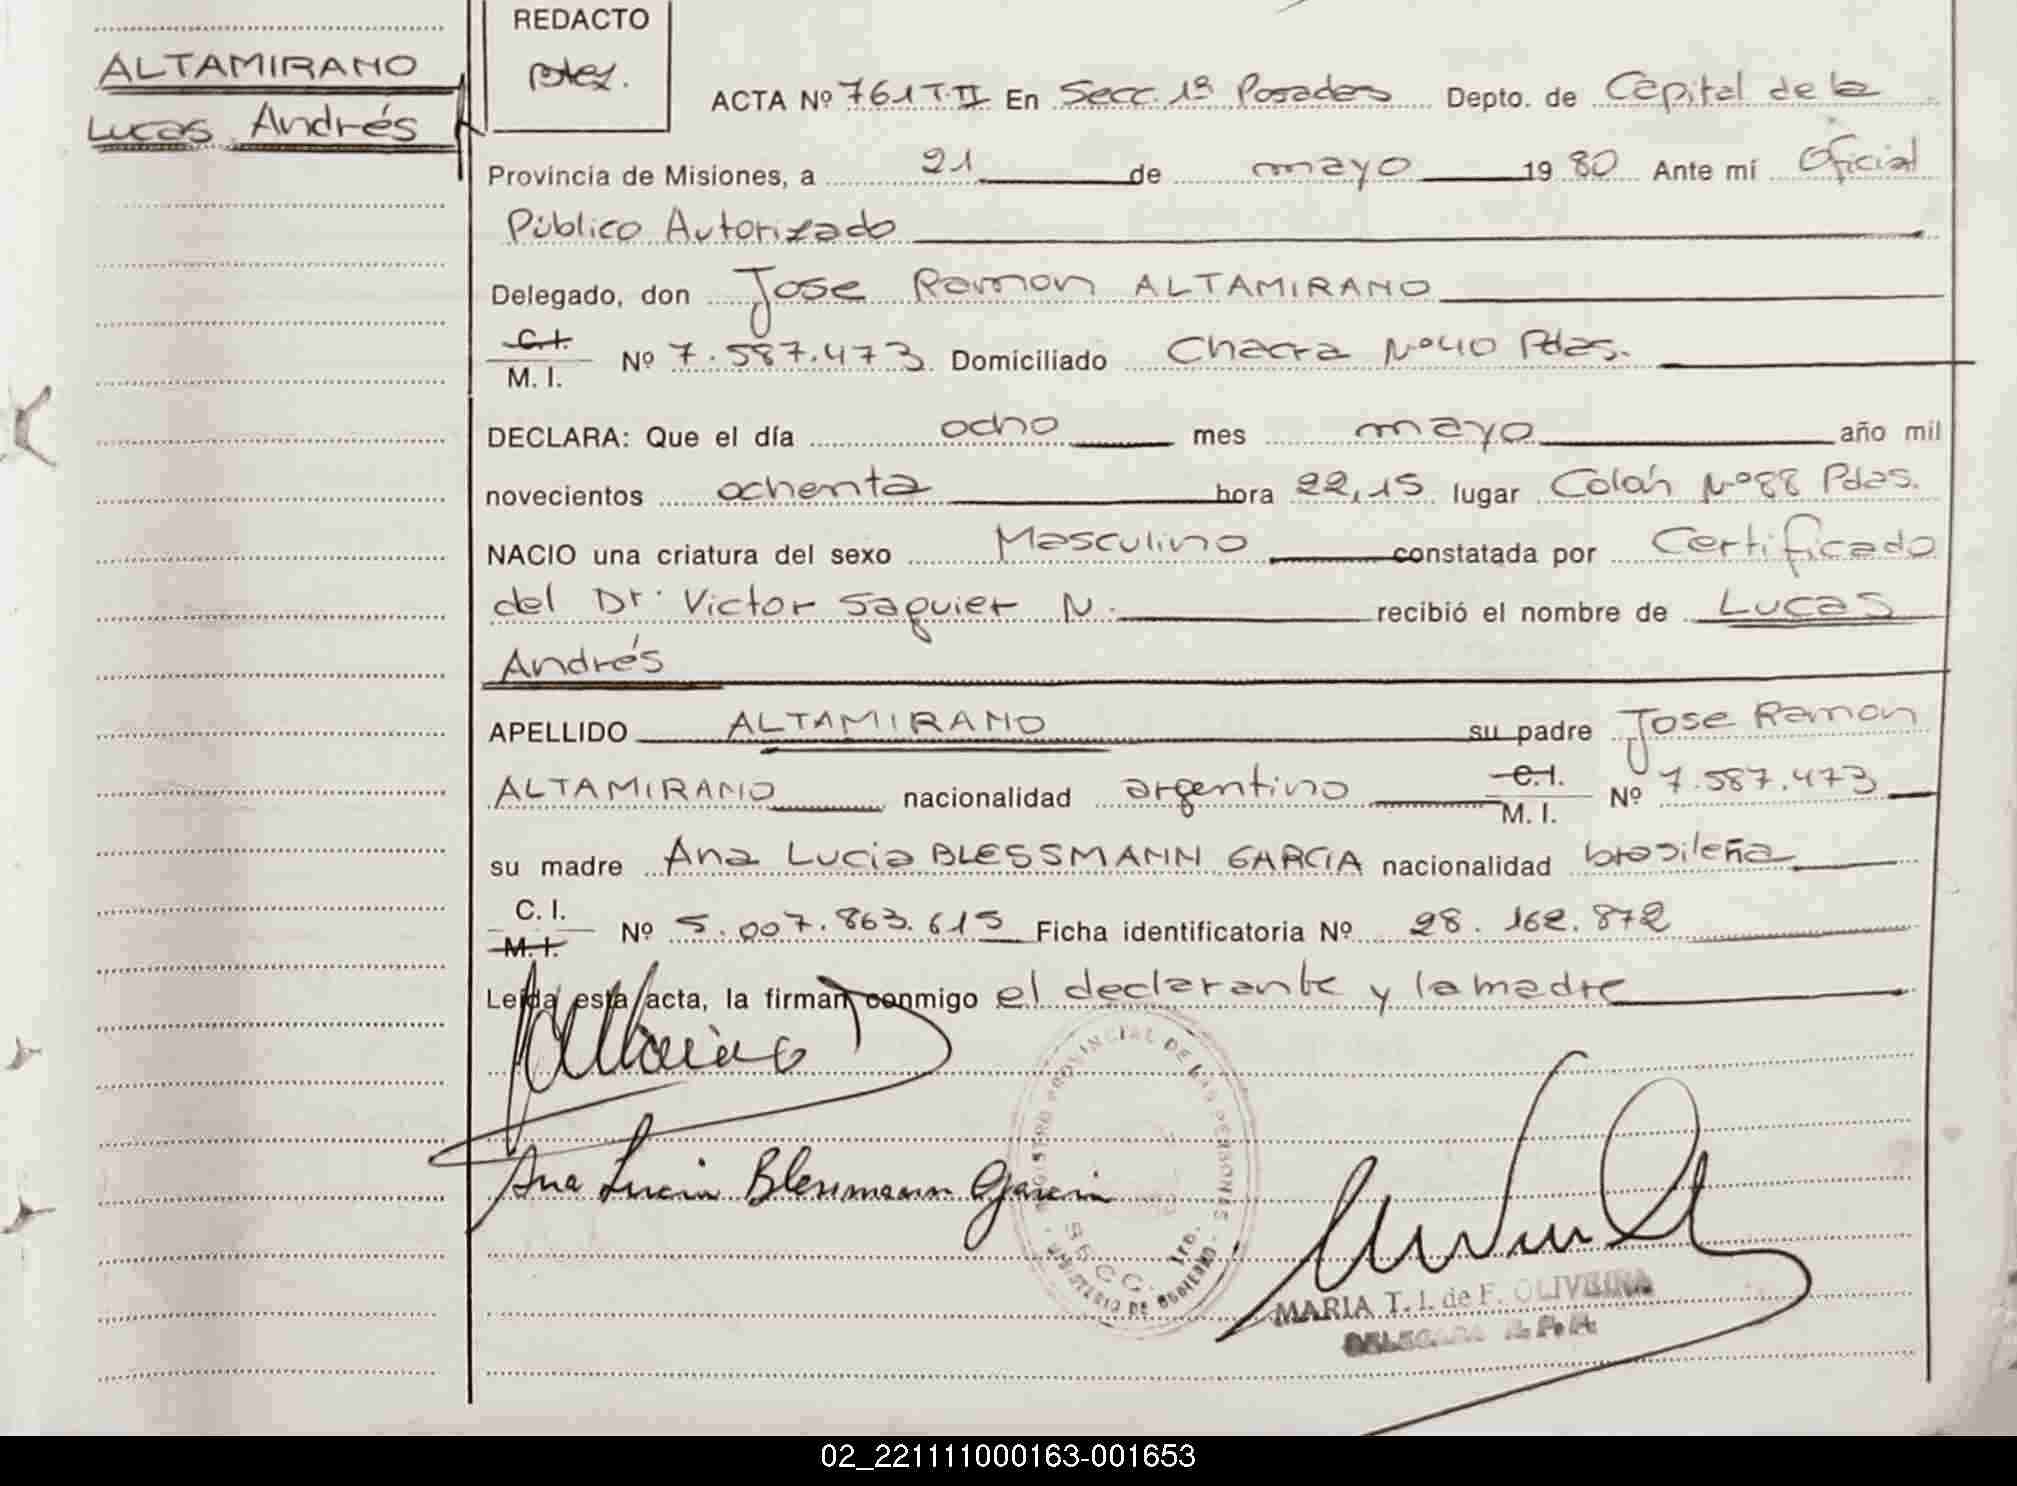 REDACTO
ALTAMIRANO
Lucas Andrés
ACTA Nº 761 T.II En Secc. 1ª Posadas Depto. de Capital de la
Provincia de Misiones, a 21 de mayo 1980 Ante mí Oficial
Público Autorizado
Delegado, don Jose Ramon ALTAMIRANO
C.I.
M. I. Nº 7.587.473 Domiciliado Chacra Nº40 Pdas.
DECLARA: Que el día ocho mes mayo año mil
novecientos ochenta hora 22,15 lugar Colón Nº88 Pdas.
NACIO una criatura del sexo Masculino constatada por Certificado
del Dr. Victor Saguier N. recibió el nombre de Lucas
Andrés
APELLIDO ALTAMIRANO su padre Jose Ramon
ALTAMIRANO nacionalidad argentino C.I. M. I. Nº 7.587.473
su madre Ana Lucia BLESSMANN GARCIA nacionalidad brasileña
C. I.
M.I. Nº 5.007.863.615 Ficha identificatoria Nº 28.162.872
Leída esta acta, la firman conmigo el declarante y la madre
Ana Lucia Blessmann Garcia
REGISTRO PROVINCIAL DE LAS PERSONAS
SECC. 1ra.
MINISTERIO DE GOBIERNO
MARIA T. I. de F. OLIVEIRA
DELEGADA R.P.P.
02_221111000163-001653